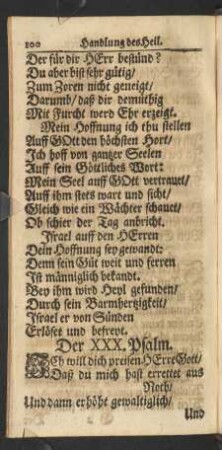 100 Handlung des Heil.
Der für dir HErr bestünd?
Du aber bist sehr gütig/
Zum Zoren nicht geneigt/
Darumb/ daß dir demüthig
Mit Furcht werd Ehr erzeigt.
Mein Hoffnung ich thu stellen
Auff GOtt den höchsten Hort/
Ich hoff von gantzer Seelen
Auff sein Göttliches Wort:
Mein Seel auff GOtt vertrauet/
Auff ihm stets wart und sicht/
Gleich wie ein Wächter schauet/
Ob schier der Tag anbricht.
Israel auff den HErren
Dein Hoffnung sey gewandt:
Denn sein Güt weit und ferren
Ist männiglich bekandt.
Bey ihm wird Heyl gefunden/
Durch sein Barmhertzigkeit/
Israel er von Sünden
Erlöset und befreyt.
Der XXX. Psalm.
ICh will dich preisen HErre Gott/
Daß du mich hast errettet aus
Noth/
Und dann erhöht gewaltiglich/
Und